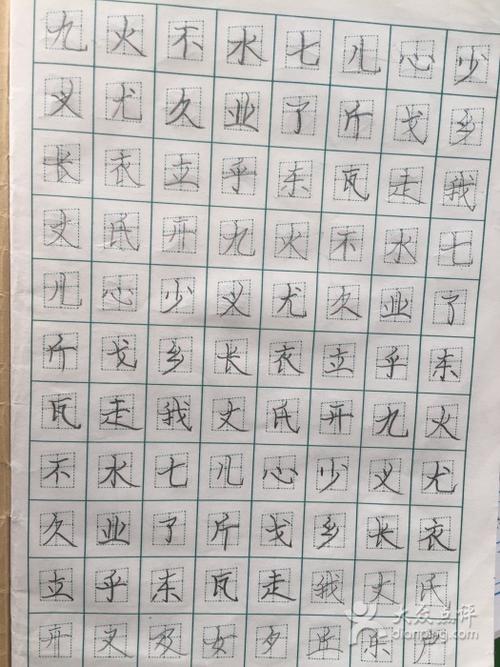 九火不水七儿心少
义尤久业了斤戈乡
长衣立乎东瓦走我
丈氏开九火不水七
儿心少义尤久业了
斤戈乡长衣立乎东
瓦走我丈氏开九火
不水七儿心少义尤
久业了斤戈乡长衣
立乎东瓦走我丈氏
开叉及女夕
大众点评
dianping.com